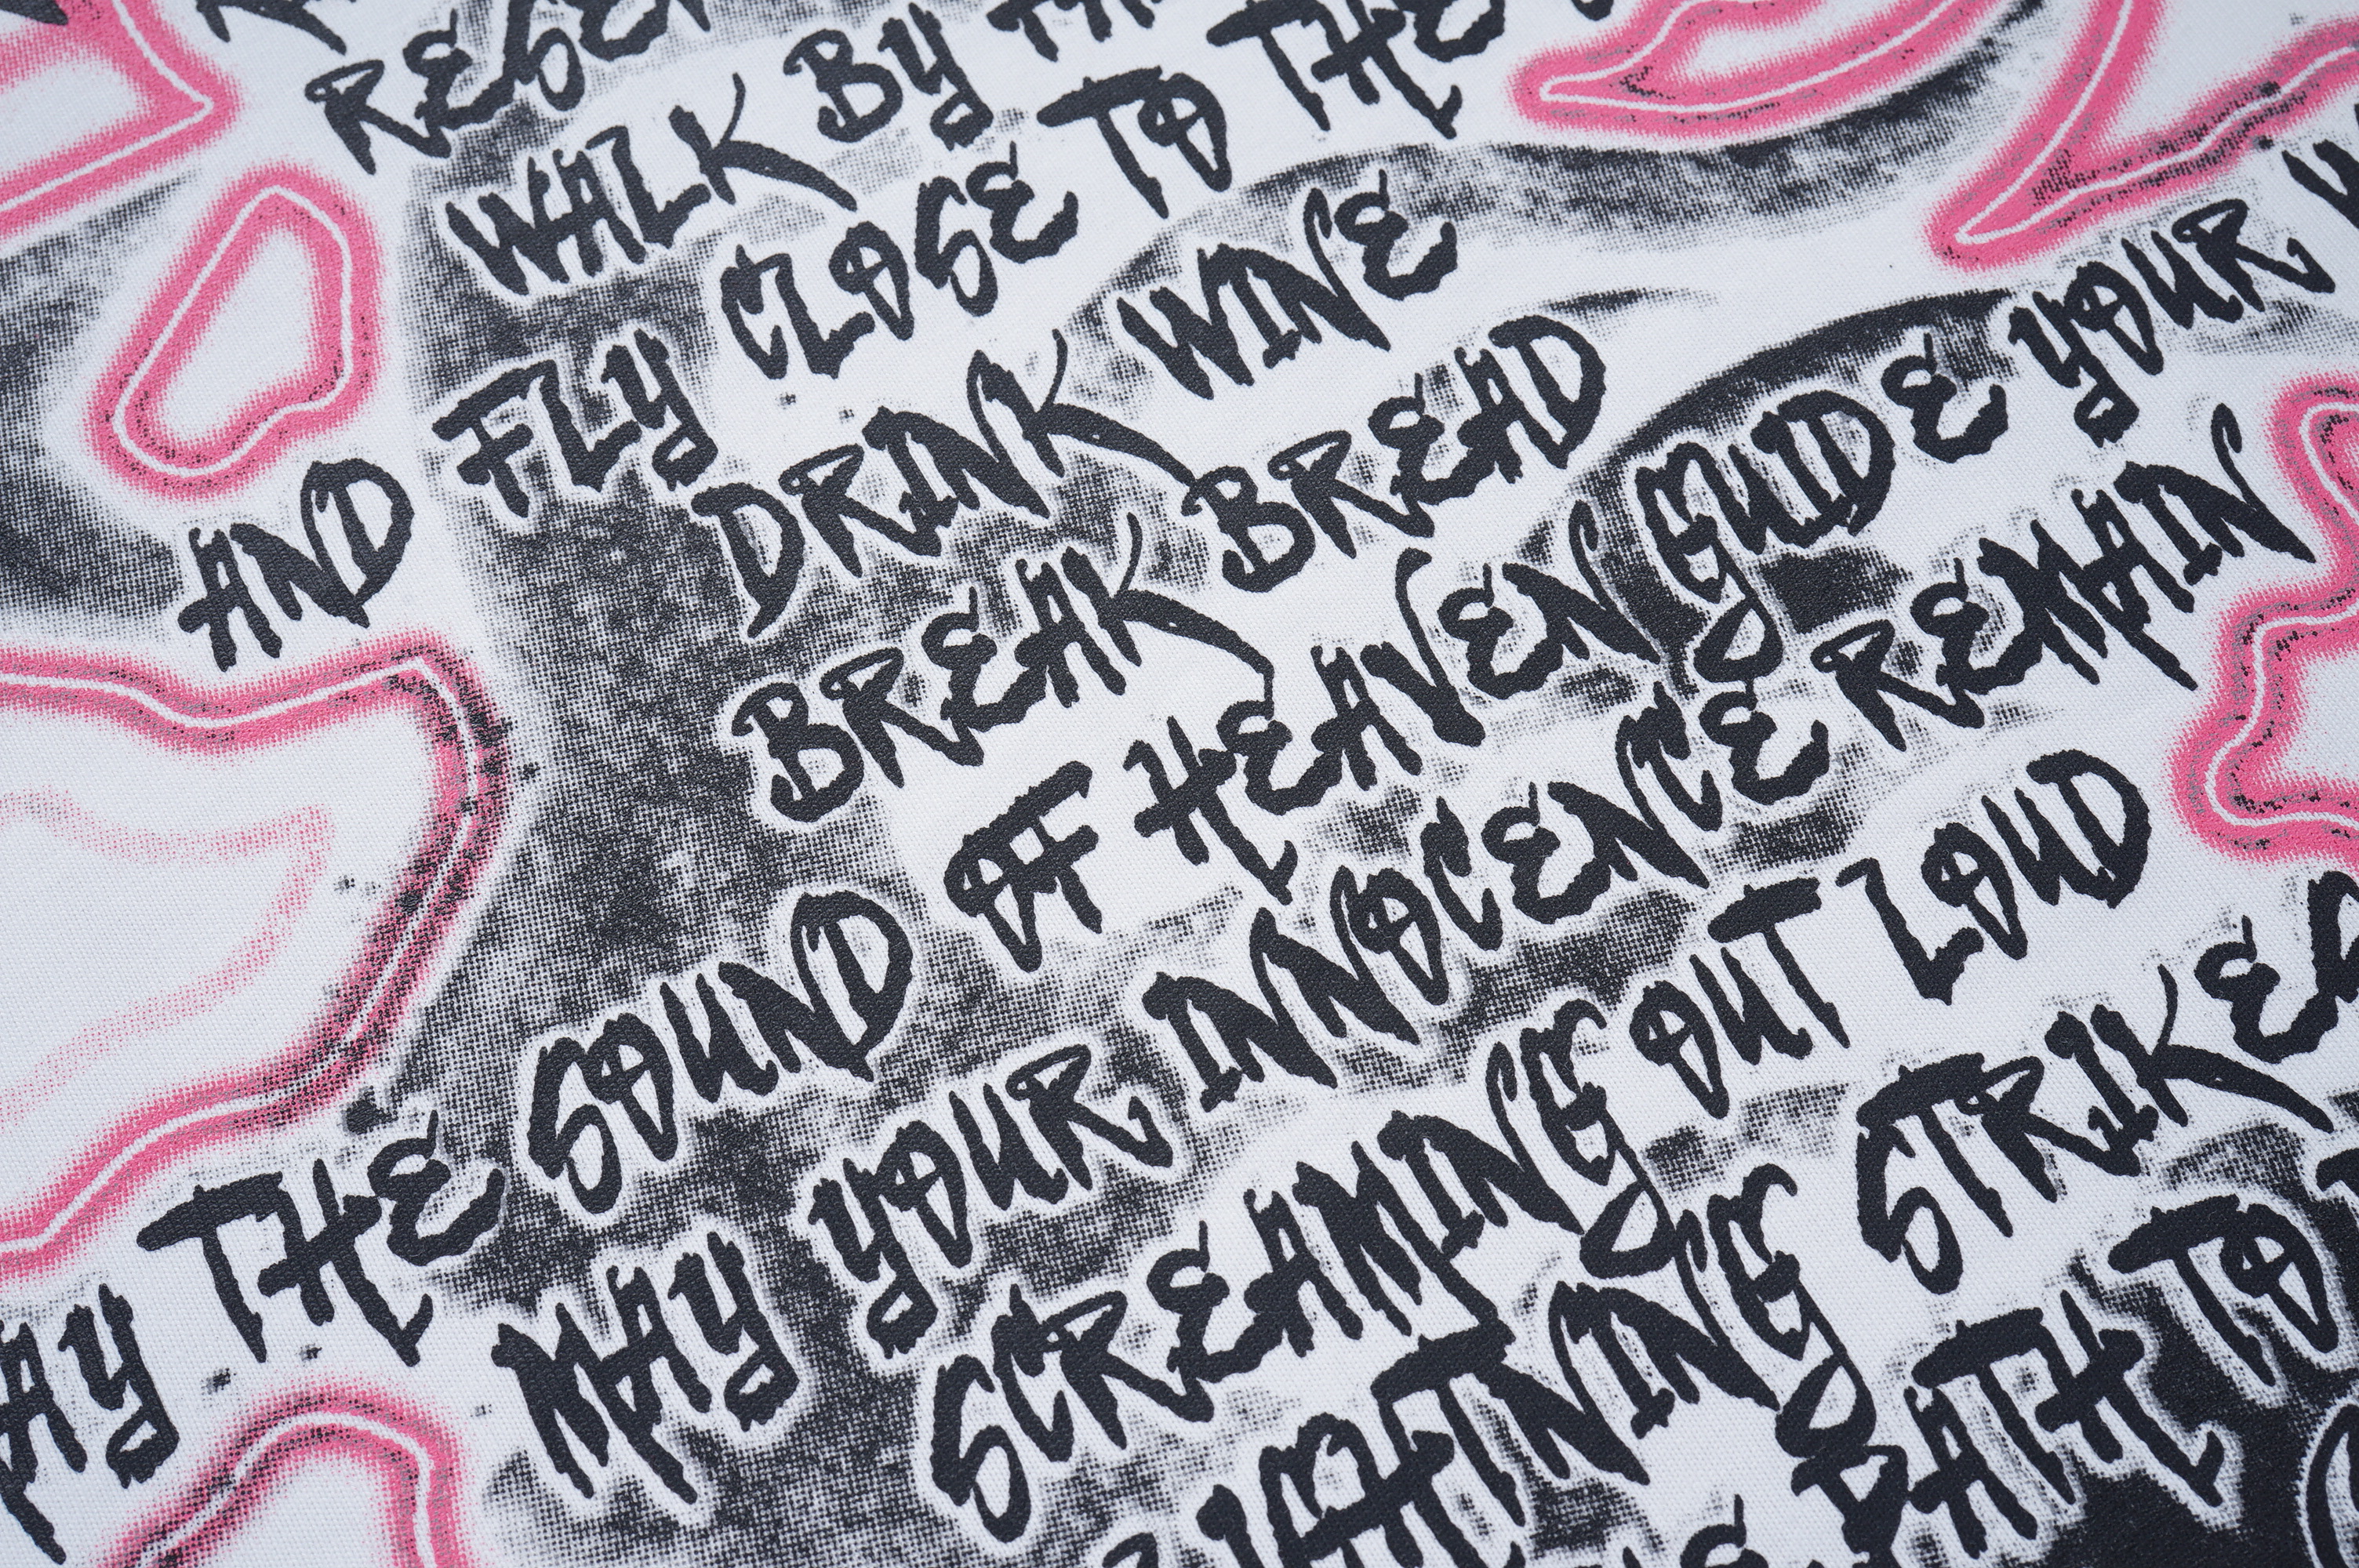 WALK BY
AND FLY CLOSE TO THE
DRINK WINE
BREAK BREAD
THE SOUND OF HEAVEN GUIDE YOUR
MAY YOUR INNOCENCE REMAIN
SCREAMING OUT LOUD
LIGHTNING STRIKES
PATH TO